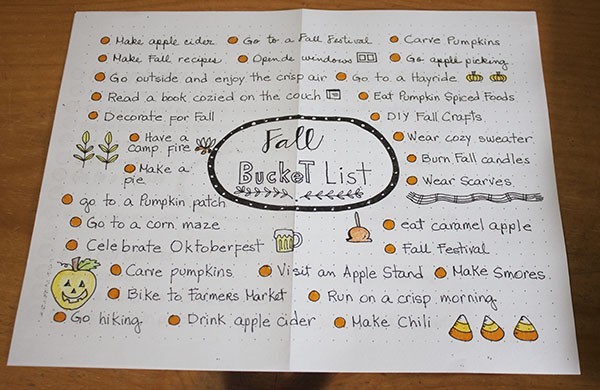 Make apple cider Go to a Fall Festival Carve Pumpkins
Make Fall recipes Opende windows Go apple picking
Go outside and enjoy the crisp air Go to a Hayride
Read a book cozied on the couch Eat Pumpkin Spiced Foods
Decorate for Fall DIY Fall Crafts
Have a
camp fire
Make a
pie
Fall
Bucket List
Wear cozy sweater
Burn Fall candles
Wear Scarves
go to a Pumpkin patch
Go to a corn maze eat caramel apple
Celebrate Oktoberfest Fall Festival
Carve pumpkins Visit an Apple Stand Make Smores
Bike to Farmers Market Run on a crisp morning
Go hiking Drink apple cider Make Chili